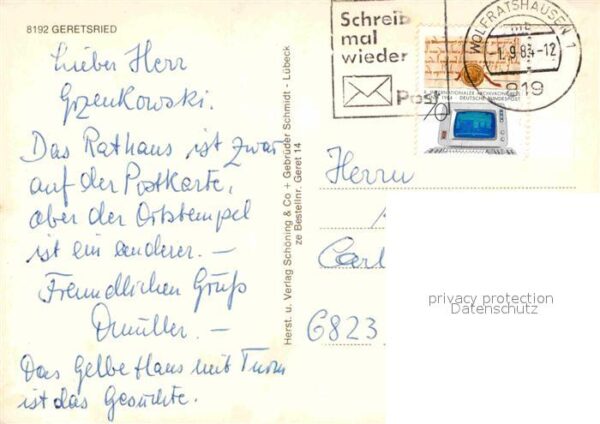 8192 GERETSRIED
Lieber Herr
Grzenkowski.
Das Rathaus ist zwar
auf der Postkarte,
aber der Ortstempel
ist ein anderer. —
Freundlichen Gruß
Das Gelbe Haus mit Turm
ist das Gesuchte.
Herst. u. Verlag Schöning & Co + Gebrüder Schmidt - Lübeck
ze Bestellnr. Geret 14
Schreib
mal
wieder
Post
WOLFRATSHAUSEN 1
mb
-1.9.84-12
819
INTERNATIONALER ARCHIVKONGRESS
1984 DEUTSCHE BUNDESPOST
70
Herrn
Carl
6823
privacy protection
Datenschutz